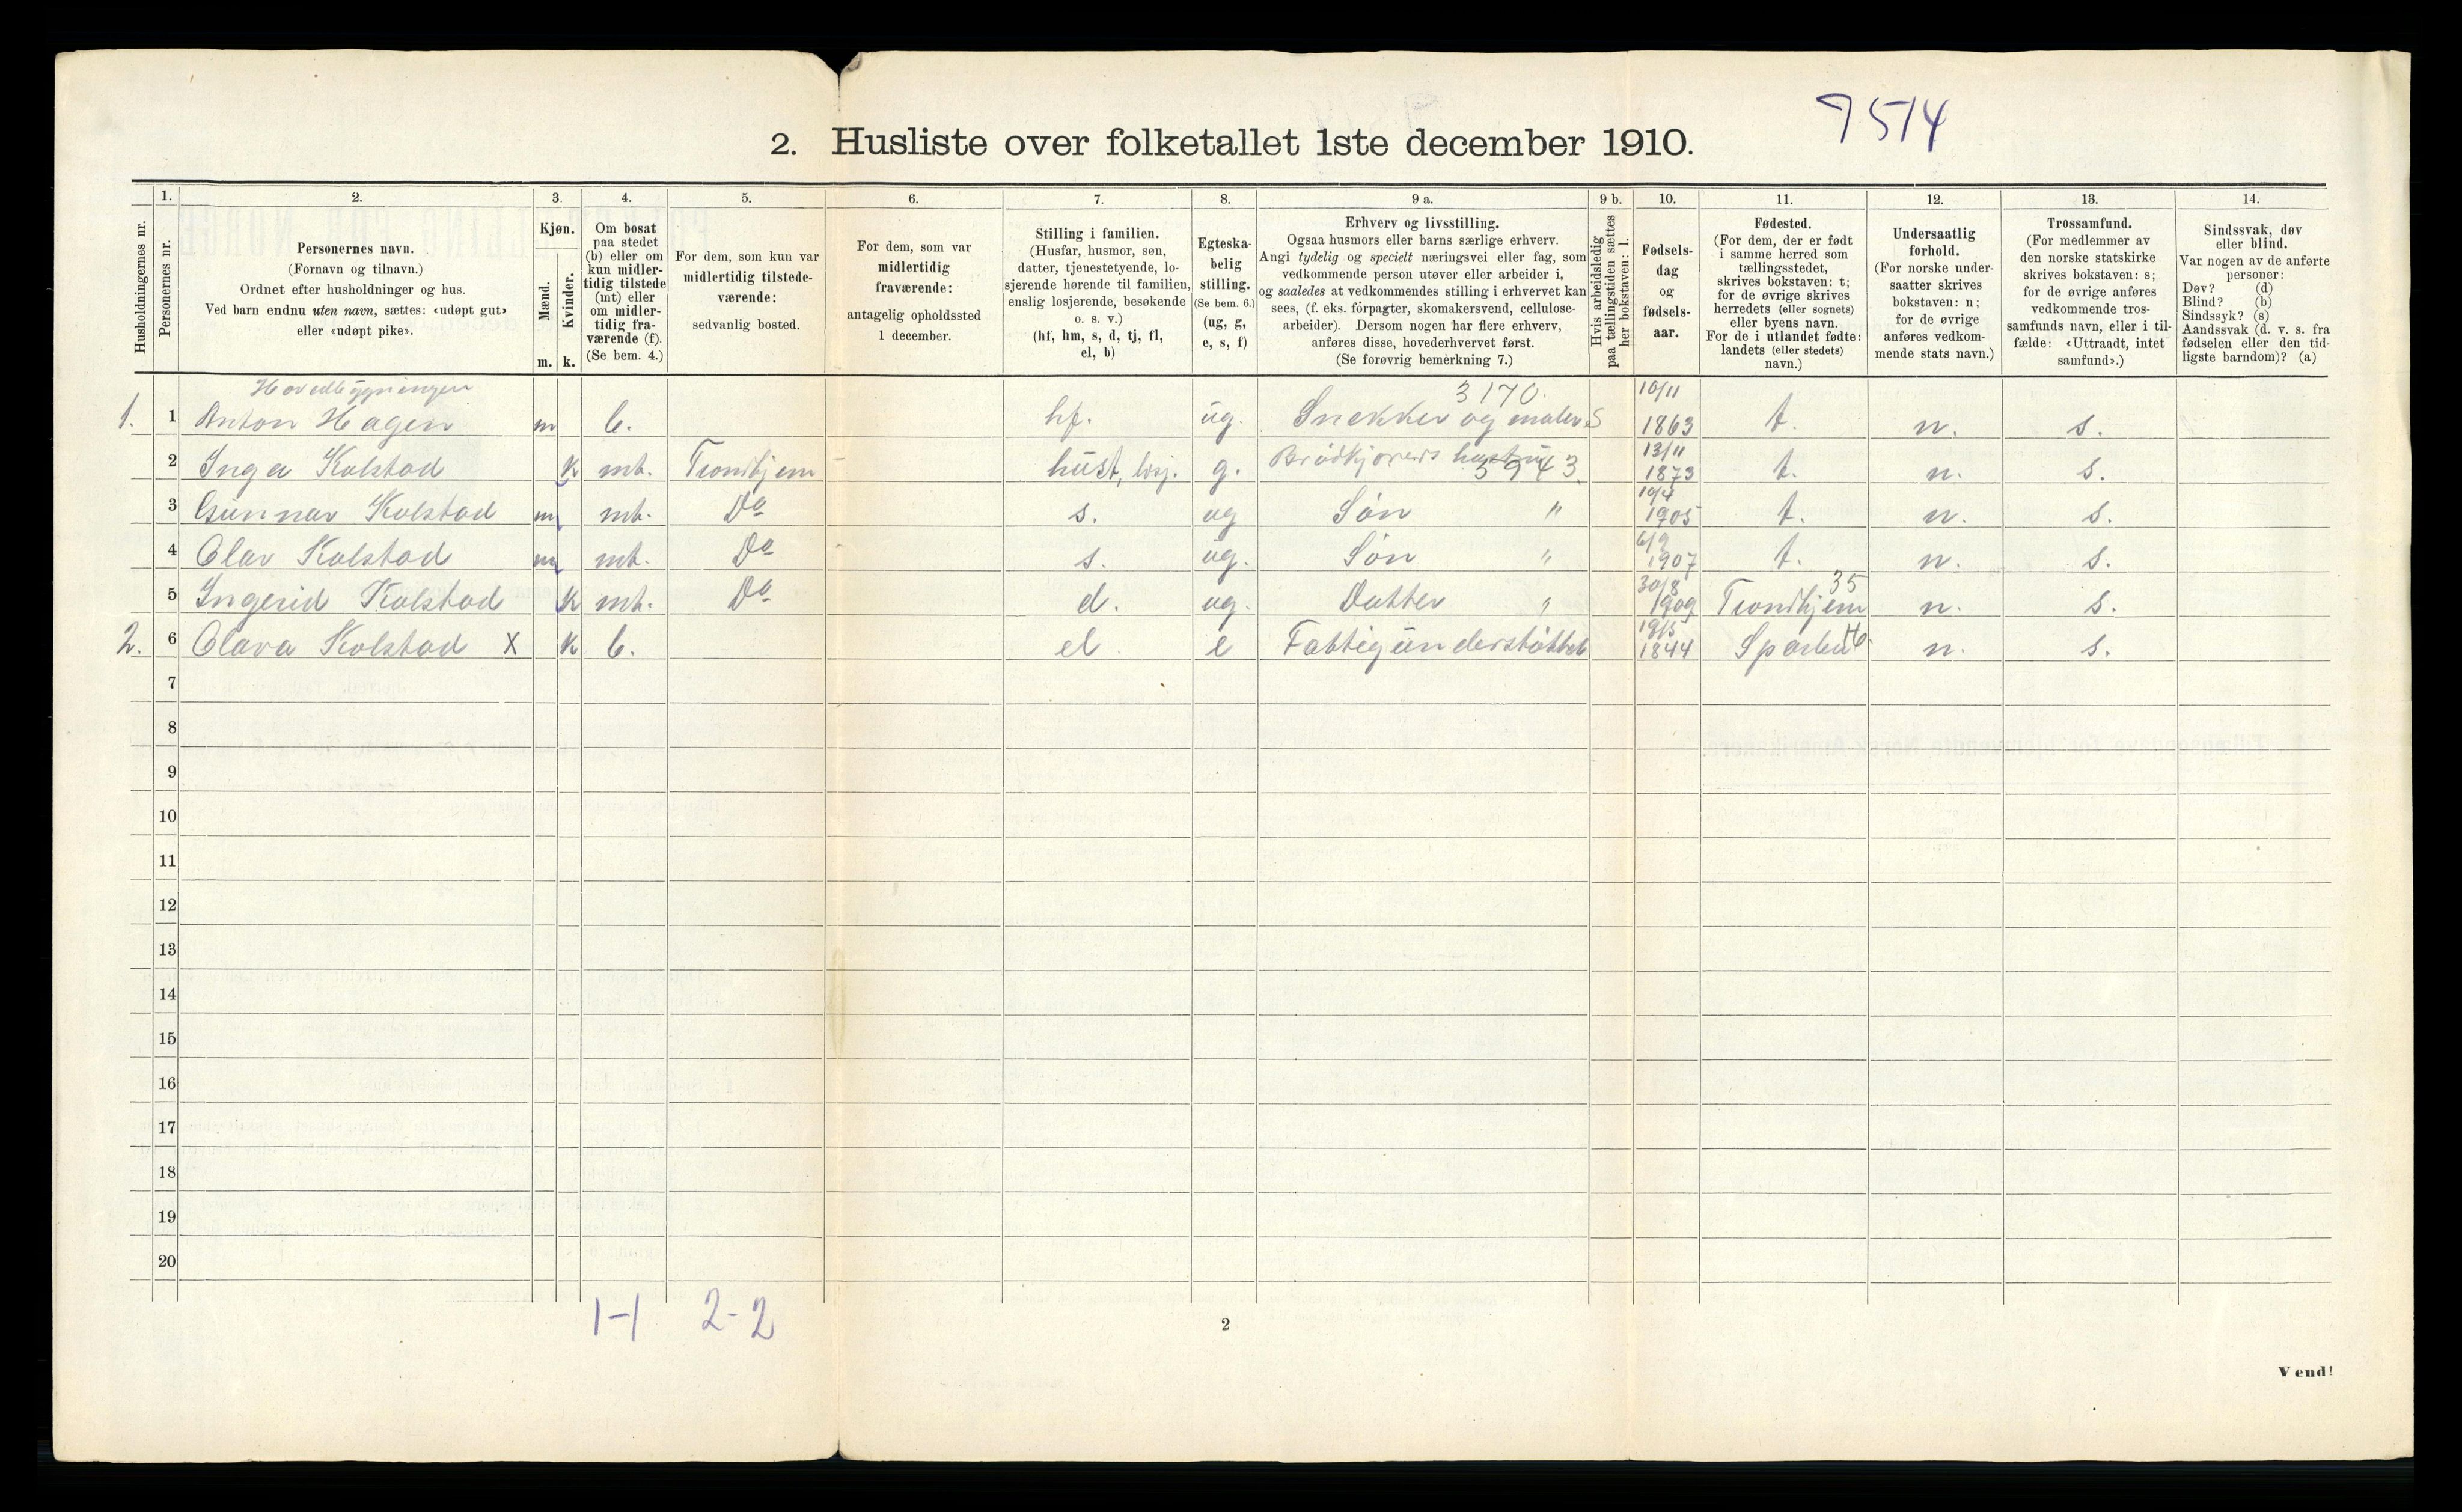 7514
2. Husliste over folketallet 1ste december 1910.
Husholdningernes nr.
1.
Personernes nr.
2.
Personernes navn.
(Fornavn og tilnavn.)
Ordnet efter husholdninger og hus.
Ved barn endnu uten navn, sættes: «udøpt gut»
eller «udøpt pike».
3.
Kjøn.
Mænd.
Kvinder.
m. k.
4.
Om bosat
paa stedet
(b) eller om
kun midler-
tidig tilstede
(mt) eller
om midler-
tidig fra-
værende (f).
(Se bem. 4.)
5.
For dem, som kun var
midlertidig tilstede-
værende:
sedvanlig bosted.
6.
For dem, som var
midlertidig
fraværende:
antagelig opholdssted
1 december.
7.
Stilling i familien.
(Husfar, husmor, søn,
datter, tjenestetyende, lo-
sjerende hørende til familien,
enslig losjerende, besøkende
o. s. v.)
(hf, hm, s, d, tj, fl,
el, b)
8.
Egteska-
belig
stilling.
(Se bem. 6.)
(ug, g,
e, s, f)
9 a.
Erhverv og livsstilling.
Ogsaa husmors eller barns særlige erhverv.
Angi tydelig og specielt næringsvei eller fag, som
vedkommende person utøver eller arbeider i,
og saaledes at vedkommendes stilling i erhvervet kan
sees, (f. eks. forpagter, skomakersvend, cellulose-
arbeider). Dersom nogen har flere erhverv,
anføres disse, hovederhvervet først.
(Se forøvrig bemerkning 7.)
9 b.
Hvis arbeidsledig
paa tællingstiden sættes
her bokstaven: l.
10.
Fødsels-
dag
og
fødsels-
aar.
11.
Fødested.
(For dem, der er født
i samme herred som
tællingsstedet,
skrives bokstaven: t;
for de øvrige skrives
herredets (eller sognets)
eller byens navn.
For de i utlandet fødte:
landets (eller stedets)
navn.)
12.
Undersaatlig
forhold.
(For norske under-
saatter skrives
bokstaven: n;
for de øvrige
anføres vedkom-
mende stats navn.)
13.
Trossamfund.
(For medlemmer av
den norske statskirke
skrives bokstaven: s;
for de øvrige anføres
vedkommende tros-
samfunds navn, eller i til-
fælde: «Uttraadt, intet
samfund».)
14.
Sindssvak, døv
eller blind.
Var nogen av de anførte
personer:
Døv? (d)
Blind? (b)
Sindssyk? (s)
Aandssvak (d. v. s. fra
fødselen eller den tid-
ligste barndom)? (a)
Hovedbygningen 3170. 10/11
1. 1 Anton Hagen m b. hf. ug. Snekker og maler S 1863 t. n. s.
2 Inga Kolstad k mt. Trondhjem hust, losj. g. Brødkjørers hustru 3943. 13/11 1873 t. n. s.
3 Gunnar Kolstad m mt. Do s. ug Søn " 19/4 1905 t. n. s.
4 Olav Kolstad m mt. Do s. ug. Søn " 6/9 1907 t. n. s.
5 Ingerid Kolstad k mt. Do d. ug. Datter " 30/8 1909 Trondhjem 35 n. s.
2. 6 Olava Kolstad X k b. el. e Fattigunderstøttet 19/5 1844 Sparbu 16. n. s.
7
8
9
10
11
12
13
14
15
16
17
18
19
20
1-1 2-2
2
Vend!